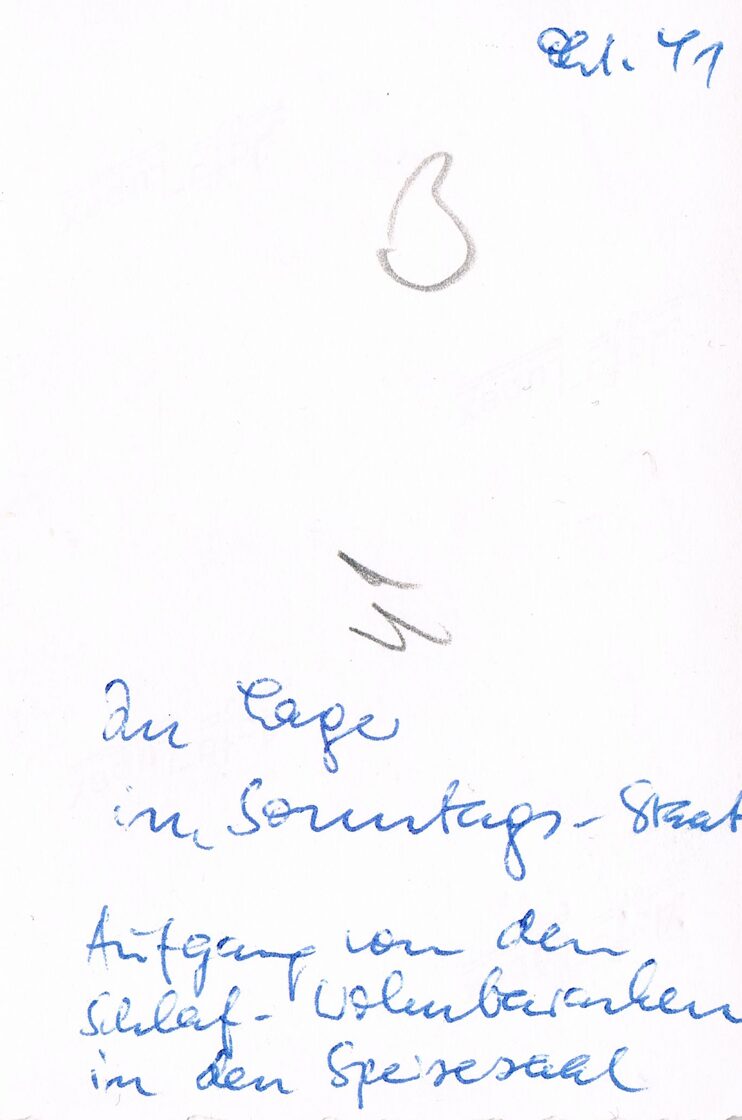 Okt. 41
B
Im Lager
im Sonntags-Staat
Aufgang von den
Schlaf-Wohnbaracken
in den Speisesaal